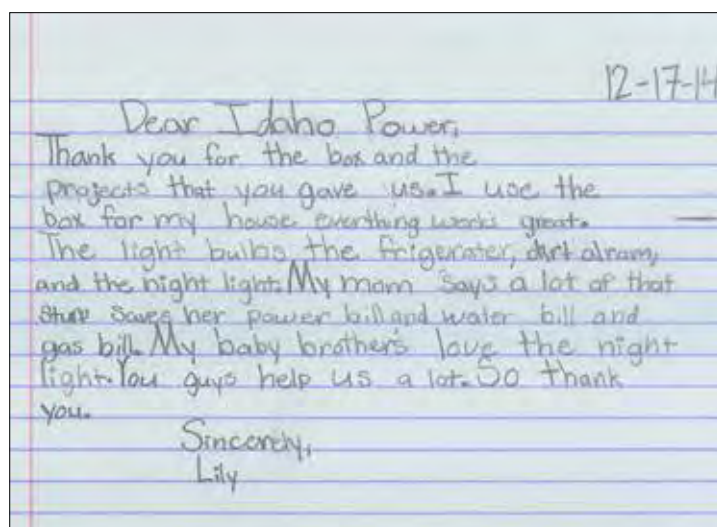 12-17-14
Dear Idaho Power,
Thank you for the box and the
projects that you gave us. I use the
box for my house everthing works great.
The light bulbs the frigerater, dirt alram,
and the night light. My mom says a lot of that
stuff saves her power bill and water bill and
gas bill. My baby brothers love the night
light. You guys help us a lot. So thank
you.
Sincerely,
Lily